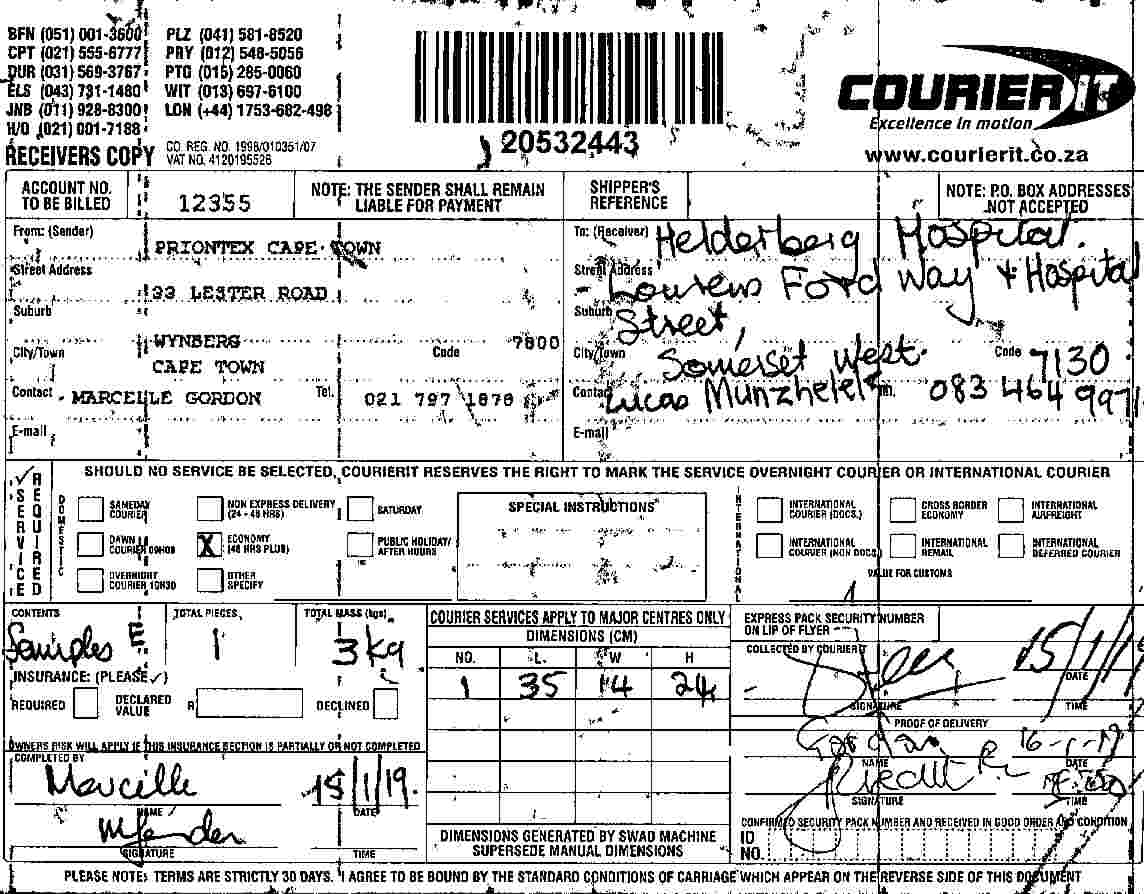 BFN (051) 001-3600 PLZ (041) 581-8520
CPT (021) 555-6777 PRY (012) 548-5056
DUR (031) 569-3767 PTG (015) 285-0060
ELS (043) 731-1480 WIT (013) 697-6100
JNB (011) 928-8300 LON (+44) 1753-682-498
H/O (021) 001-7188
RECEIVERS COPY
CO. REG. NO. 1998/010351/07
VAT NO. 4120195526
20532443
COURIER IT
Excellence in motion
www.courierit.co.za
ACCOUNT NO. TO BE BILLED 12355
NOTE: THE SENDER SHALL REMAIN LIABLE FOR PAYMENT
SHIPPER'S REFERENCE
NOTE: P.O. BOX ADDRESSES NOT ACCEPTED
From: (Sender) PRIONTEX CAPE TOWN
Street Address 33 LESTER ROAD
Suburb WYNBERG
City/Town CAPE TOWN Code 7800
Contact MARCELLE GORDON Tel. 021 797 1878
E-mail
To: (Receiver) Helderberg Hospital.
Street Address Lourens Ford Way + Hospital
Suburb Street,
City/Town Somerset West. Code 7130
Contact Lucas Tel. 083 464
E-mail
SERVICE REQUIRED
SHOULD NO SERVICE BE SELECTED, COURIERIT RESERVES THE RIGHT TO MARK THE SERVICE OVERNIGHT COURIER OR INTERNATIONAL COURIER
DOMESTIC
SAMEDAY COURIER
NON EXPRESS DELIVERY (24 - 48 HRS)
SATURDAY
DAWN COURIER 09H00
X ECONOMY (48 HRS PLUS)
PUBLIC HOLIDAY/ AFTER HOURS
OVERNIGHT COURIER 10H30
OTHER SPECIFY
SPECIAL INSTRUCTIONS
INTERNATIONAL
INTERNATIONAL COURIER (DOCS.)
CROSS BORDER ECONOMY
INTERNATIONAL AIRFREIGHT
INTERNATIONAL COURIER (NON DOCS.)
INTERNATIONAL REMAIL
INTERNATIONAL DEFERRED COURIER
VALUE FOR CUSTOMS
CONTENTS Samples E
TOTAL PIECES 1
TOTAL MASS (kgs) 3 kg
INSURANCE: (PLEASE ✓)
REQUIRED
DECLARED VALUE R
DECLINED
OWNERS RISK WILL APPLY IF THIS INSURANCE SECTION IS PARTIALLY OR NOT COMPLETED
COMPLETED BY
Marcelle 15/1/19.
NAME DATE
SIGNATURE TIME
COURIER SERVICES APPLY TO MAJOR CENTRES ONLY
DIMENSIONS (CM)
NO. L W H
1 35 14 24
DIMENSIONS GENERATED BY SWAD MACHINE SUPERSEDE MANUAL DIMENSIONS
EXPRESS PACK SECURITY NUMBER ON LIP OF FLYER
COLLECTED BY COURIERIT
15/1/19
DATE
SIGNATURE TIME
PROOF OF DELIVERY
NAME DATE
SIGNATURE TIME
CONFIRMED SECURITY PACK NUMBER AND RECEIVED IN GOOD ORDER AND CONDITION
ID NO.
PLEASE NOTE: TERMS ARE STRICTLY 30 DAYS. I AGREE TO BE BOUND BY THE STANDARD CONDITIONS OF CARRIAGE WHICH APPEAR ON THE REVERSE SIDE OF THIS DOCUMENT